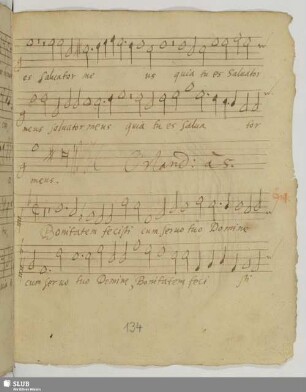 es salvator me us quia tu es salvator
meus salvator meus quia tu es salva tor
Orland: à 5.
meus.
Bonitatem fecisti cum servo tuo Domine
cum servo tuo Domine, Bonitatem feci sti
134
SLUB